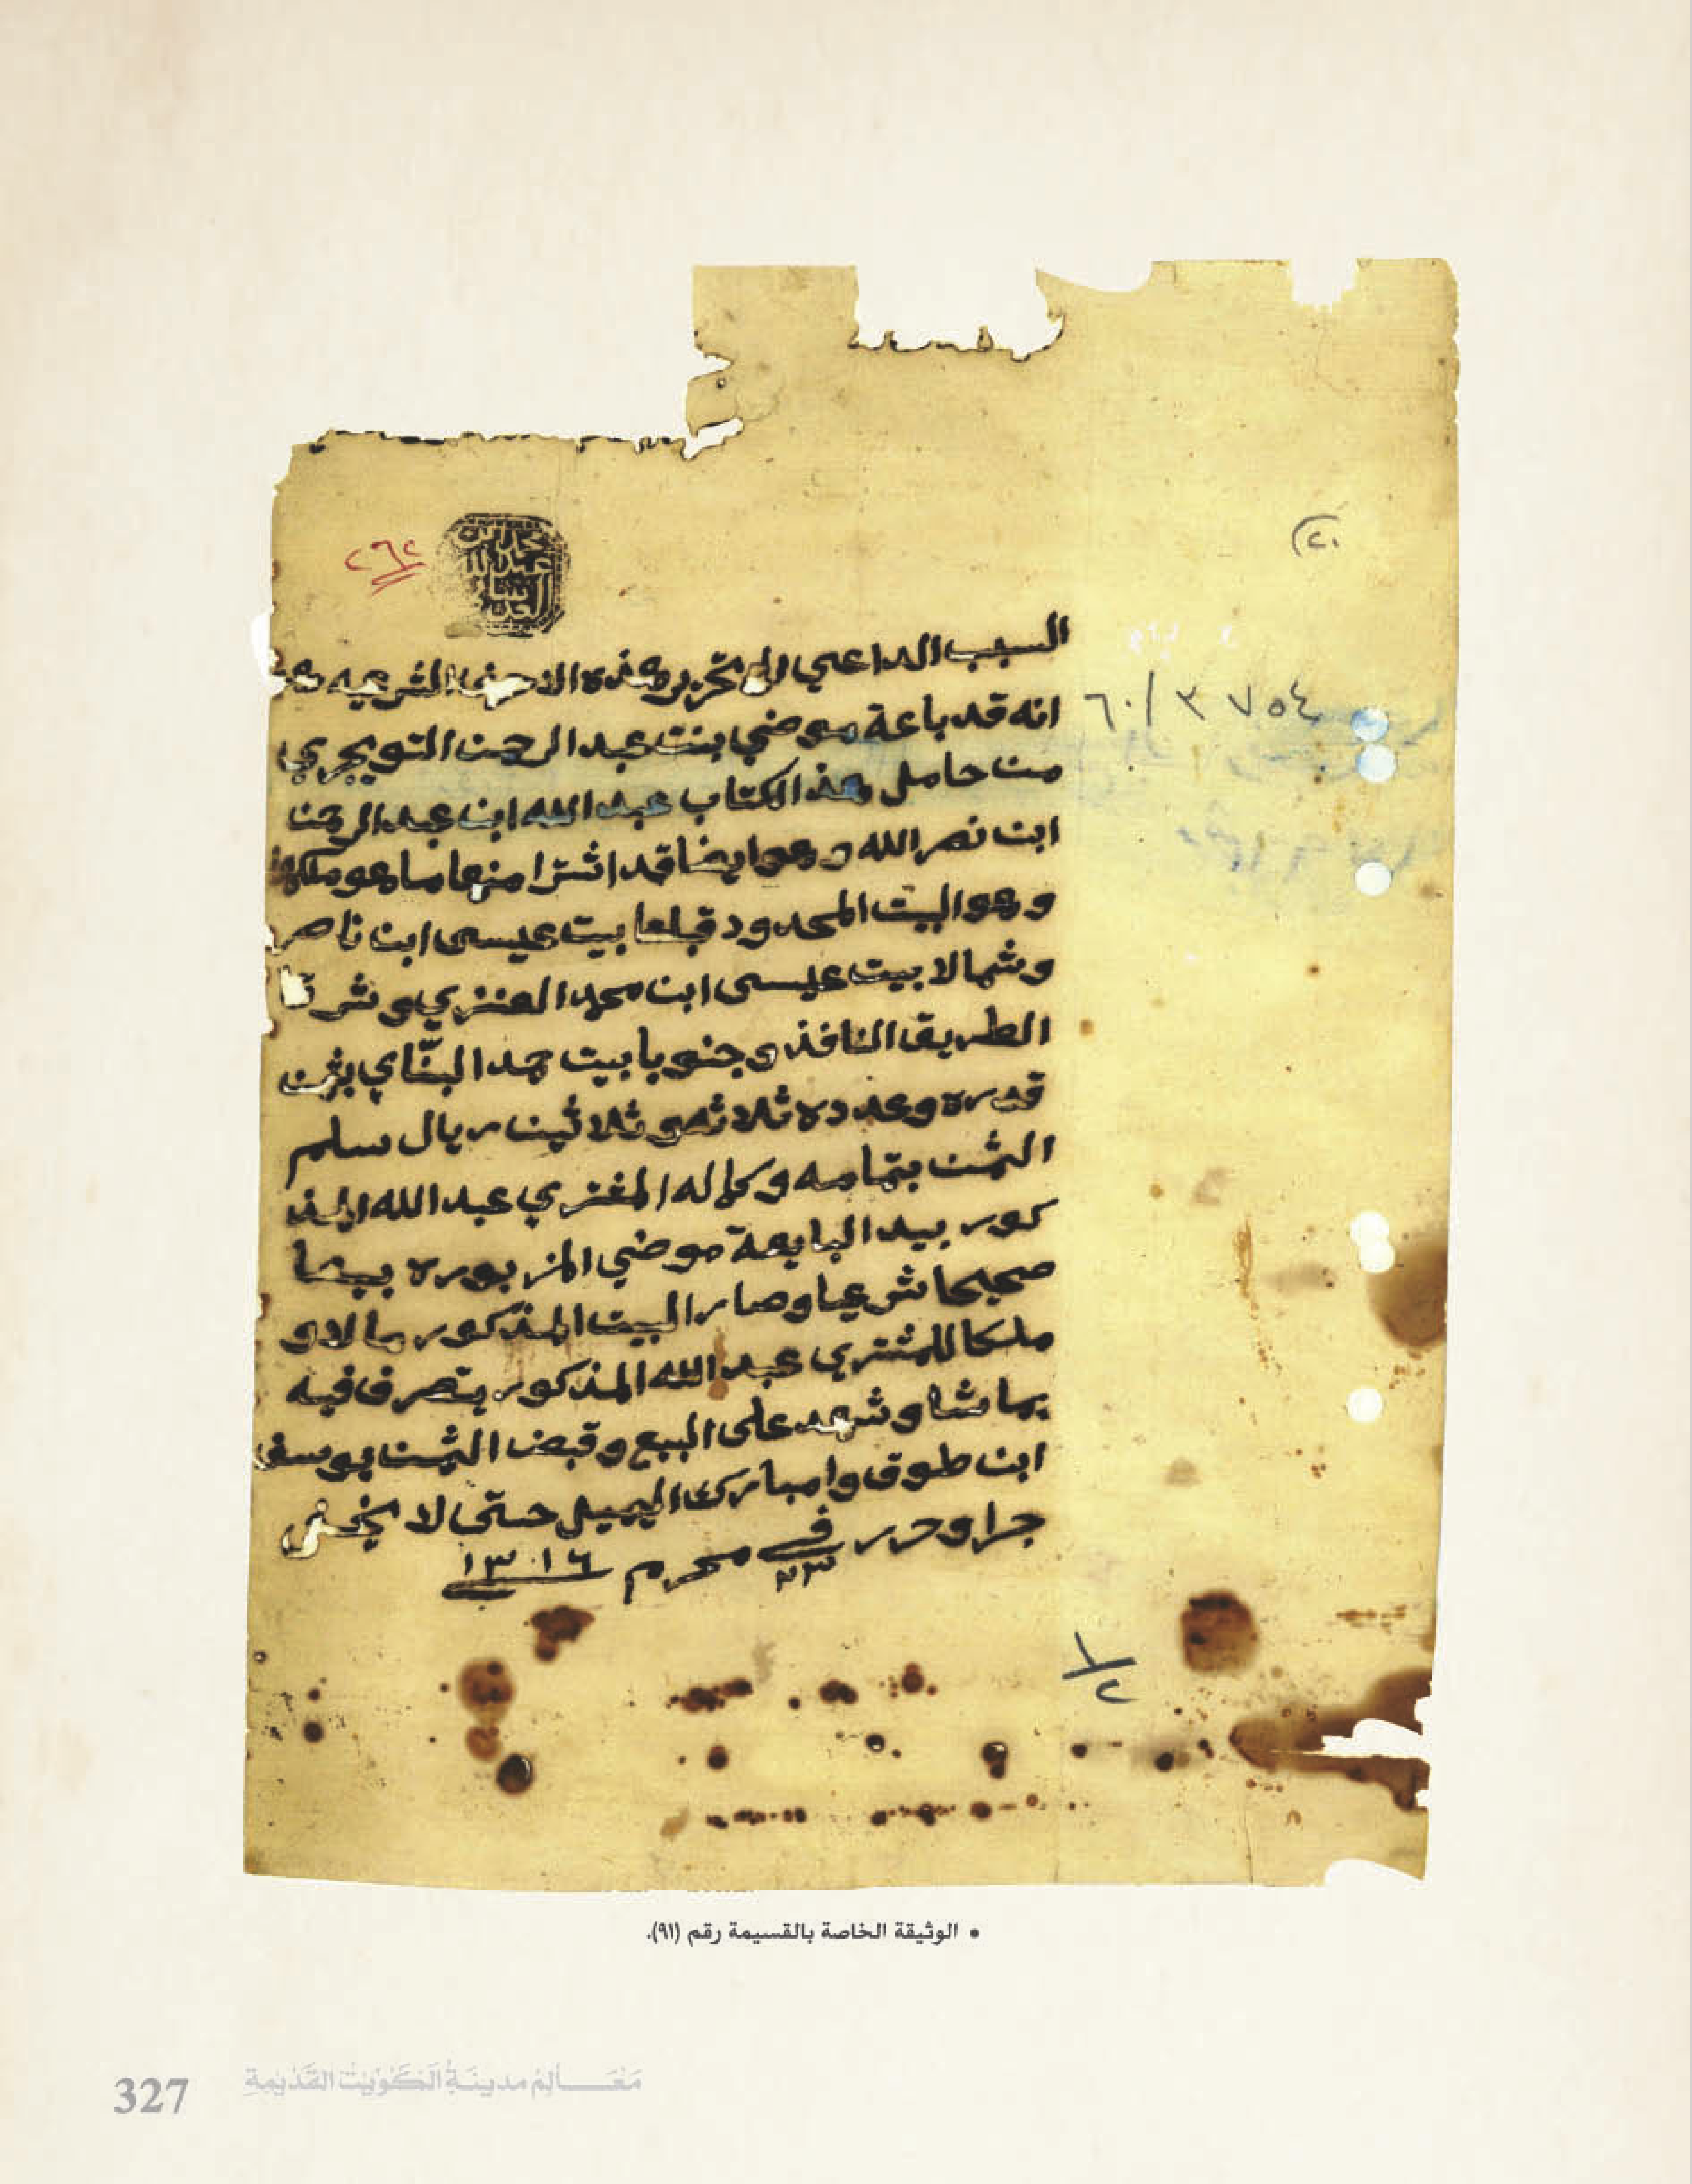 (٢٠
٢٦٢
محمد بن
عبدالله
العدساني
السبب الداعي الى تحرير هذه الاحرف الشرعيه هو
٣٧٥٤ /٦٠
انه قد باعة موضي بنت عبد الرحمن التويجري
من حامل هذ الكتاب عبد الله ابن عبد الرحمن
ابن نصر الله وهو ايضا قد اشترا منها ما هو ملكها
وهو البيت المحدود قبلها بيت عيسى ابن ناصر
وشمالا بيت عيسى ابن محمد العنزي وشرقا
الطريق النافذ وجنوبا بيت حمد البنّاي بثمن
قدره وعدده ثلاثه وثلاثين ريال سلم
الثمن بتمامه وكماله المشتري عبد الله المذ
كور بيد البايعة موضي المزبوره بيعا
صحيحا شرعيا وصار البيت المذكور مالا و
ملكا للمشتري عبد الله المذكور يتصرف فيه
بما شا وشهد على البيع وقبض الثمن يوسف
ابن طوق وامبارك الهيل حتى لا يخفى
جرا وحرر في ٢٣ محرم ١٣١٦
١/٢
• الوثيقة الخاصة بالقسيمة رقم (٩١).
327 مَعَـالِمُ مدينَةِ الكُوَيْت القَدْيمَةِ